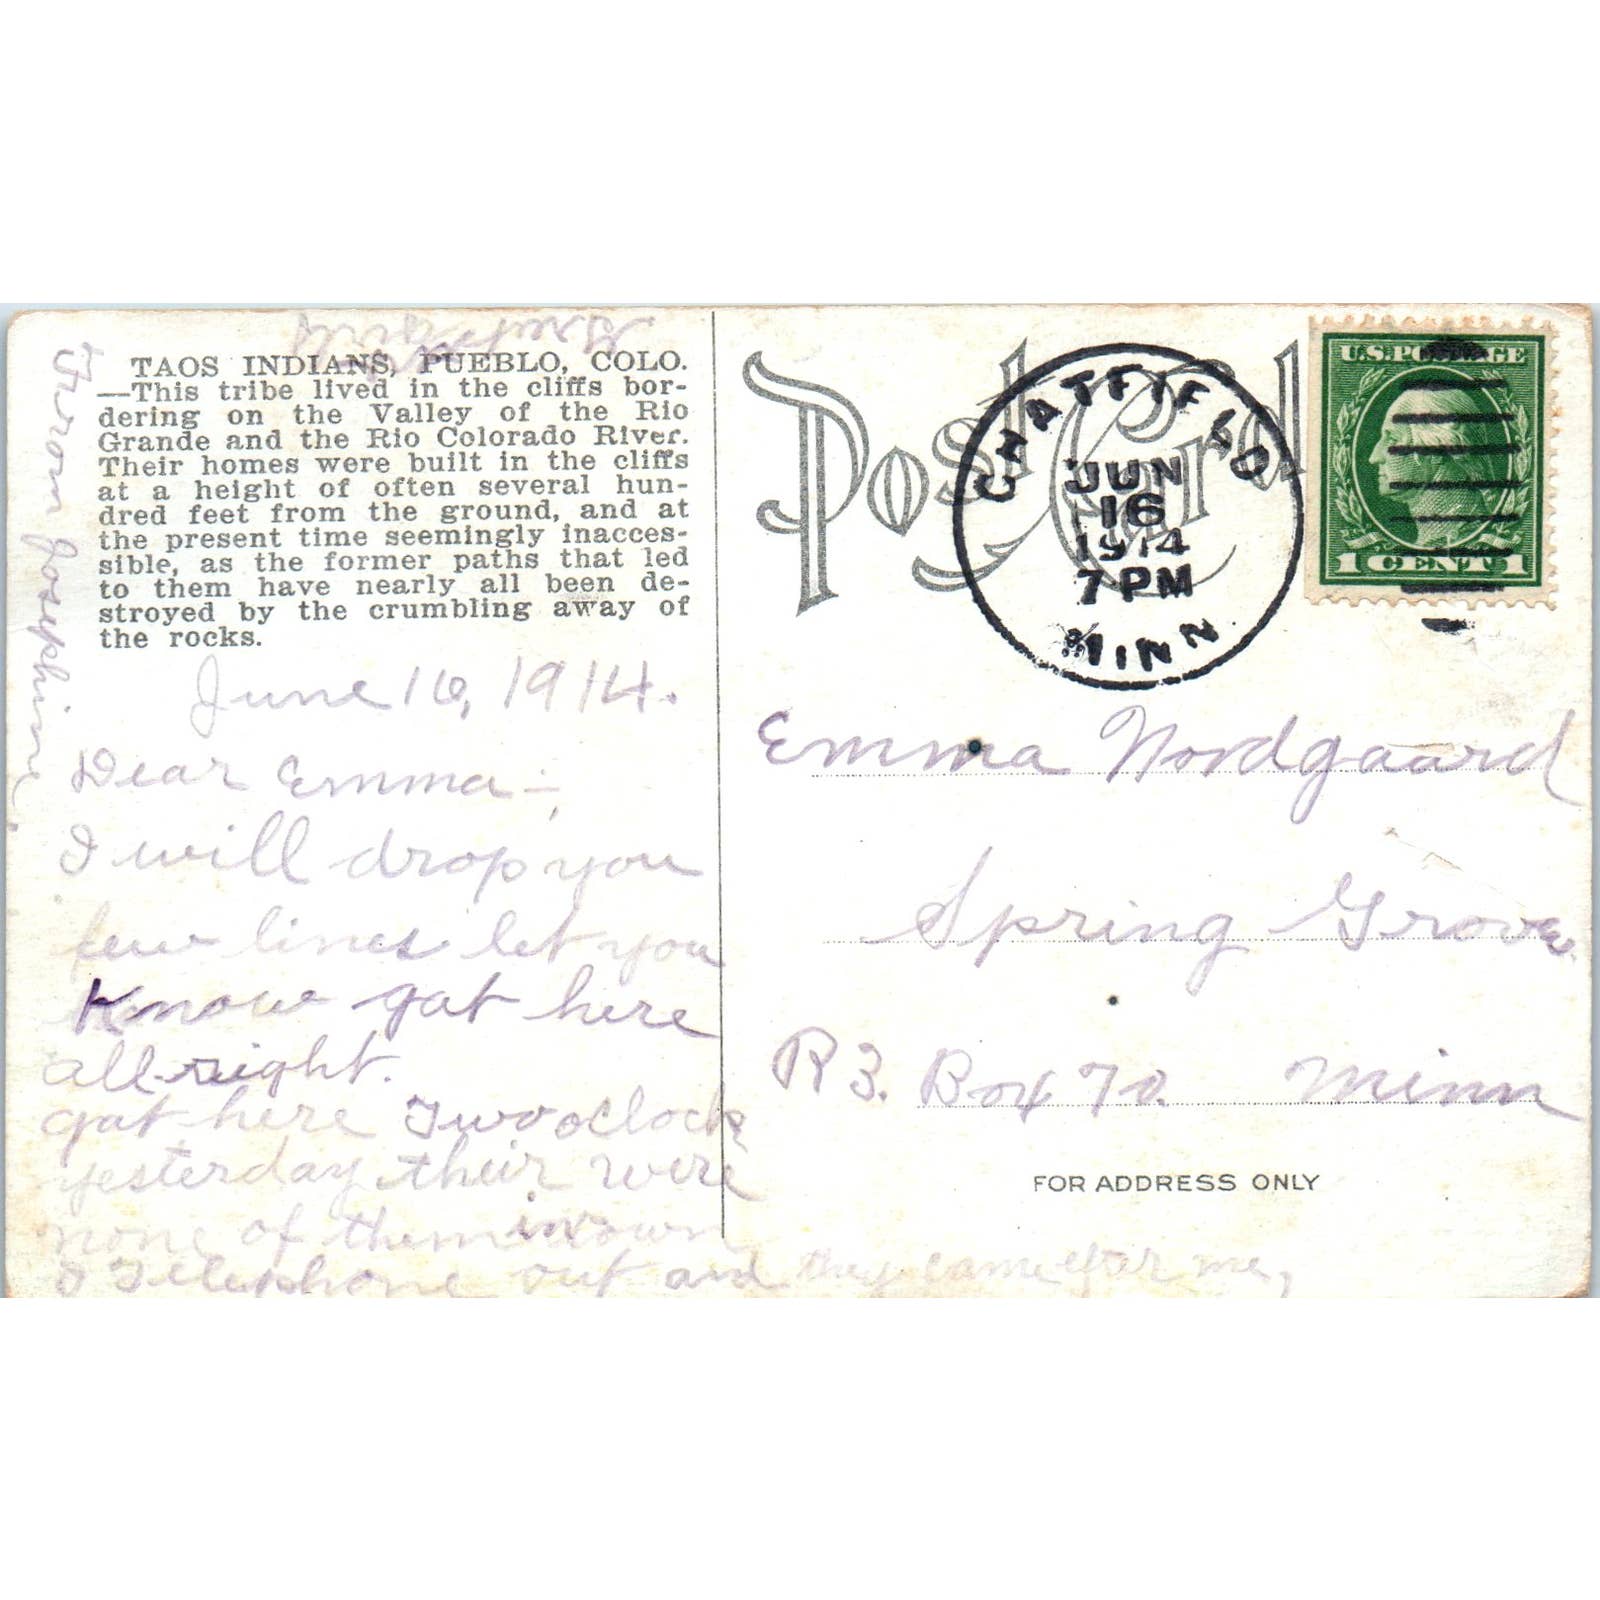 TAOS INDIANS, PUEBLO, COLO.
—This tribe lived in the cliffs bor-
dering on the Valley of the Rio
Grande and the Rio Colorado River.
Their homes were built in the cliffs
at a height of often several hun-
dred feet from the ground, and at
the present time seemingly inacces-
sible, as the former paths that led
to them have nearly all been de-
stroyed by the crumbling away of
the rocks.
June 16, 1914.
Dear Emma—,
I will drop you
few lines let you
Know gat here
all-right.
gat here Two oclock
yesterday their were
none of them in town
I Telephone out and they came after me,
From Josephine
Post Card
CHATFIELD
JUN
16
1914
7 PM
MINN.
U.S. POSTAGE
1 CENT 1
Emma Nordgaard
Spring Grove
R 3. Box 70. Minn
FOR ADDRESS ONLY